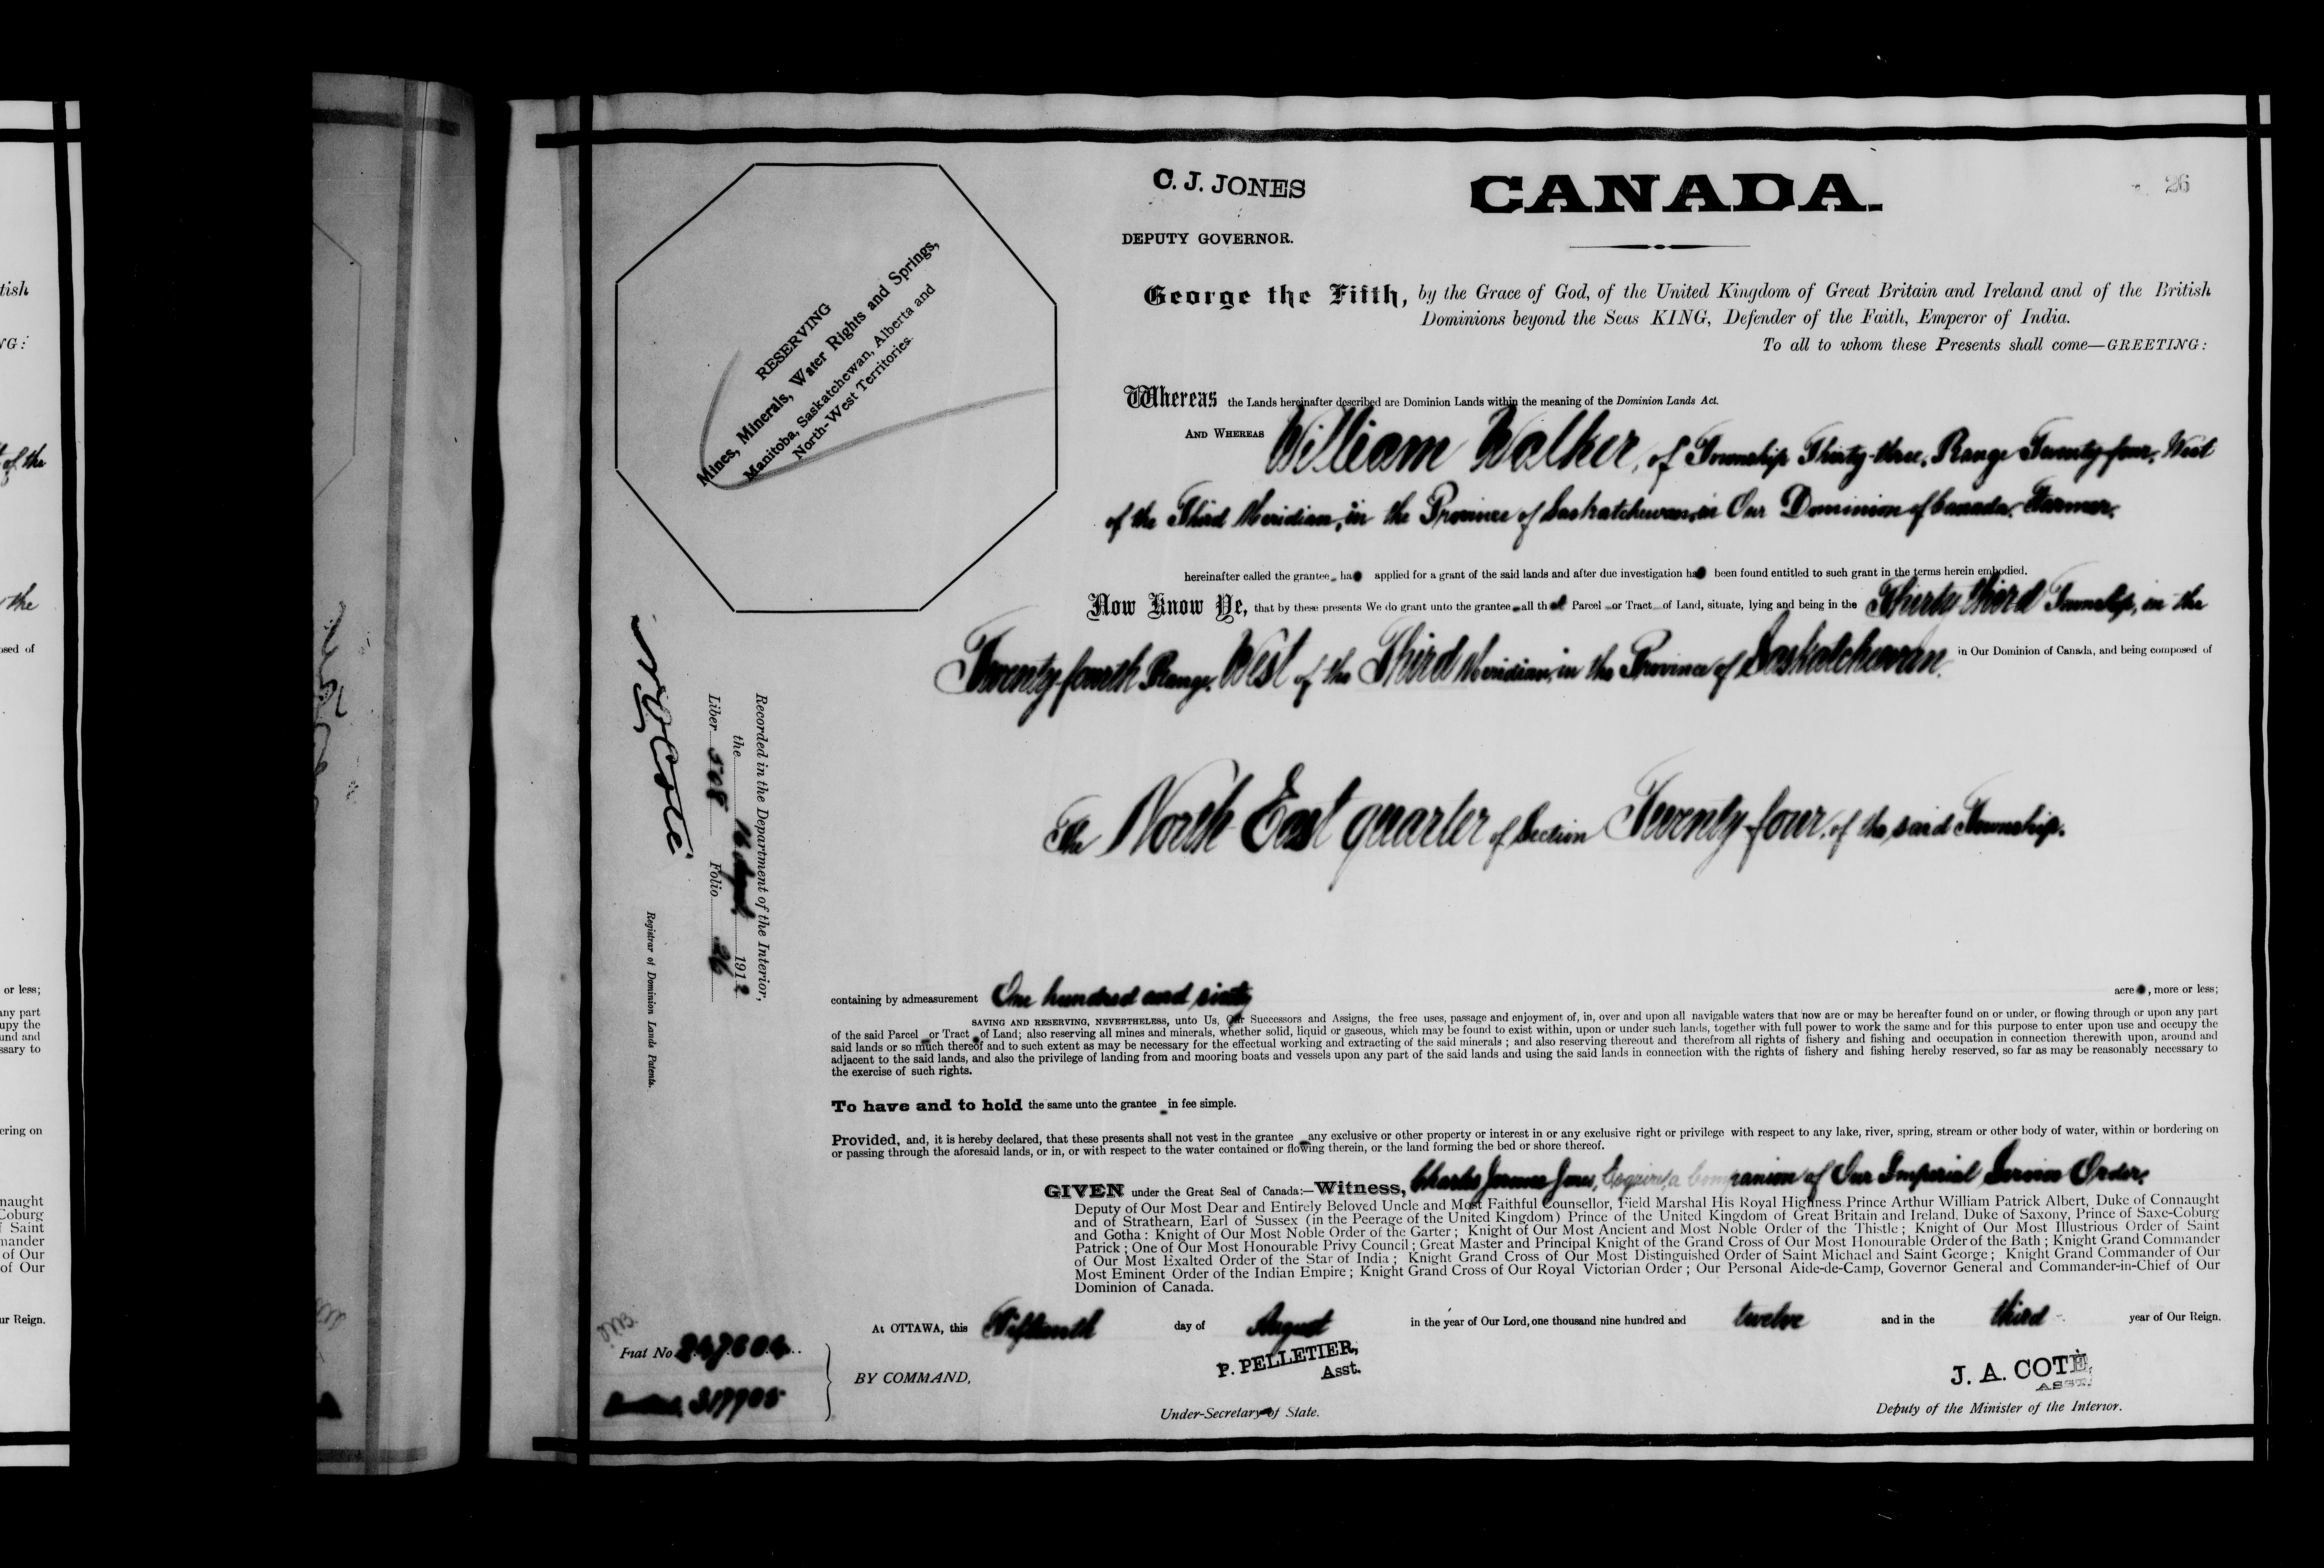 C. J. JONES
CANADA.
26
DEPUTY GOVERNOR.
RESERVING
Mines, Minerals, Water Rights and Springs,
Manitoba, Saskatchewan, Alberta and
North-West Territories.
George the Fifth, by the Grace of God, of the United Kingdom of Great Britain and Ireland and of the British
Dominions beyond the Seas KING, Defender of the Faith, Emperor of India.
To all to whom these Presents shall come—GREETING:
Whereas the Lands hereinafter described are Dominion Lands within the meaning of the Dominion Lands Act.
AND WHEREAS William Walker, of Township Thirty-three, Range Twenty-four, West
of the Third Meridian, in the Province of Saskatchewan, in Our Dominion of Canada, Farmer,
hereinafter called the grantee, has applied for a grant of the said lands and after due investigation has been found entitled to such grant in the terms herein embodied.
Now Know Ye, that by these presents We do grant unto the grantee all that Parcel or Tract of Land, situate, lying and being in the Thirty third Township, in the
Twenty-fourth Range, West of the Third Meridian, in the Province of Saskatchewan. in Our Dominion of Canada, and being composed of
The North East quarter of Section Twenty-four, of the said Township.
Recorded in the Department of the Interior,
the 16 August 1912
Liber 508 Folio 26
Registrar of Dominion Lands Patents.
containing by admeasurement One hundred and sixty acres, more or less;
SAVING AND RESERVING, NEVERTHELESS, unto Us, Our Successors and Assigns, the free uses, passage and enjoyment of, in, over and upon all navigable waters that now are or may be hereafter found on or under, or flowing through or upon any part
of the said Parcel or Tract of Land; also reserving all mines and minerals, whether solid, liquid or gaseous, which may be found to exist within, upon or under such lands, together with full power to work the same and for this purpose to enter upon use and occupy the
said lands or so much thereof and to such extent as may be necessary for the effectual working and extracting of the said minerals ; and also reserving thereout and therefrom all rights of fishery and fishing and occupation in connection therewith upon, around and
adjacent to the said lands, and also the privilege of landing from and mooring boats and vessels upon any part of the said lands and using the said lands in connection with the rights of fishery and fishing hereby reserved, so far as may be reasonably necessary to
the exercise of such rights.
To have and to hold the same unto the grantee in fee simple.
Provided, and, it is hereby declared, that these presents shall not vest in the grantee any exclusive or other property or interest in or any exclusive right or privilege with respect to any lake, river, spring, stream or other body of water, within or bordering on
or passing through the aforesaid lands, or in, or with respect to the water contained or flowing therein, or the land forming the bed or shore thereof.
GIVEN under the Great Seal of Canada:—Witness, Charles Jones, Esquire, a Companion of Our Imperial Service Order,
Deputy of Our Most Dear and Entirely Beloved Uncle and Most Faithful Counsellor, Field Marshal His Royal Highness Prince Arthur William Patrick Albert, Duke of Connaught
and of Strathearn, Earl of Sussex (in the Peerage of the United Kingdom) Prince of the United Kingdom of Great Britain and Ireland, Duke of Saxony, Prince of Saxe-Coburg
and Gotha: Knight of Our Most Noble Order of the Garter ; Knight of Our Most Ancient and Most Noble Order of the Thistle ; Knight of Our Most Illustrious Order of Saint
Patrick ; One of Our Most Honourable Privy Council ; Great Master and Principal Knight of the Grand Cross of Our Most Honourable Order of the Bath ; Knight Grand Commander
of Our Most Exalted Order of the Star of India ; Knight Grand Cross of Our Most Distinguished Order of Saint Michael and Saint George ; Knight Grand Commander of Our
Most Eminent Order of the Indian Empire ; Knight Grand Cross of Our Royal Victorian Order ; Our Personal Aide-de-Camp, Governor General and Commander-in-Chief of Our
Dominion of Canada.
At OTTAWA, this Fifteenth day of August in the year of Our Lord, one thousand nine hundred and twelve and in the third year of Our Reign.
Fiat No 247604
317905
BY COMMAND,
P. PELLETIER,
Asst.
Under-Secretary of State.
J. A. COTÉ,
ASST.
Deputy of the Minister of the Interior.